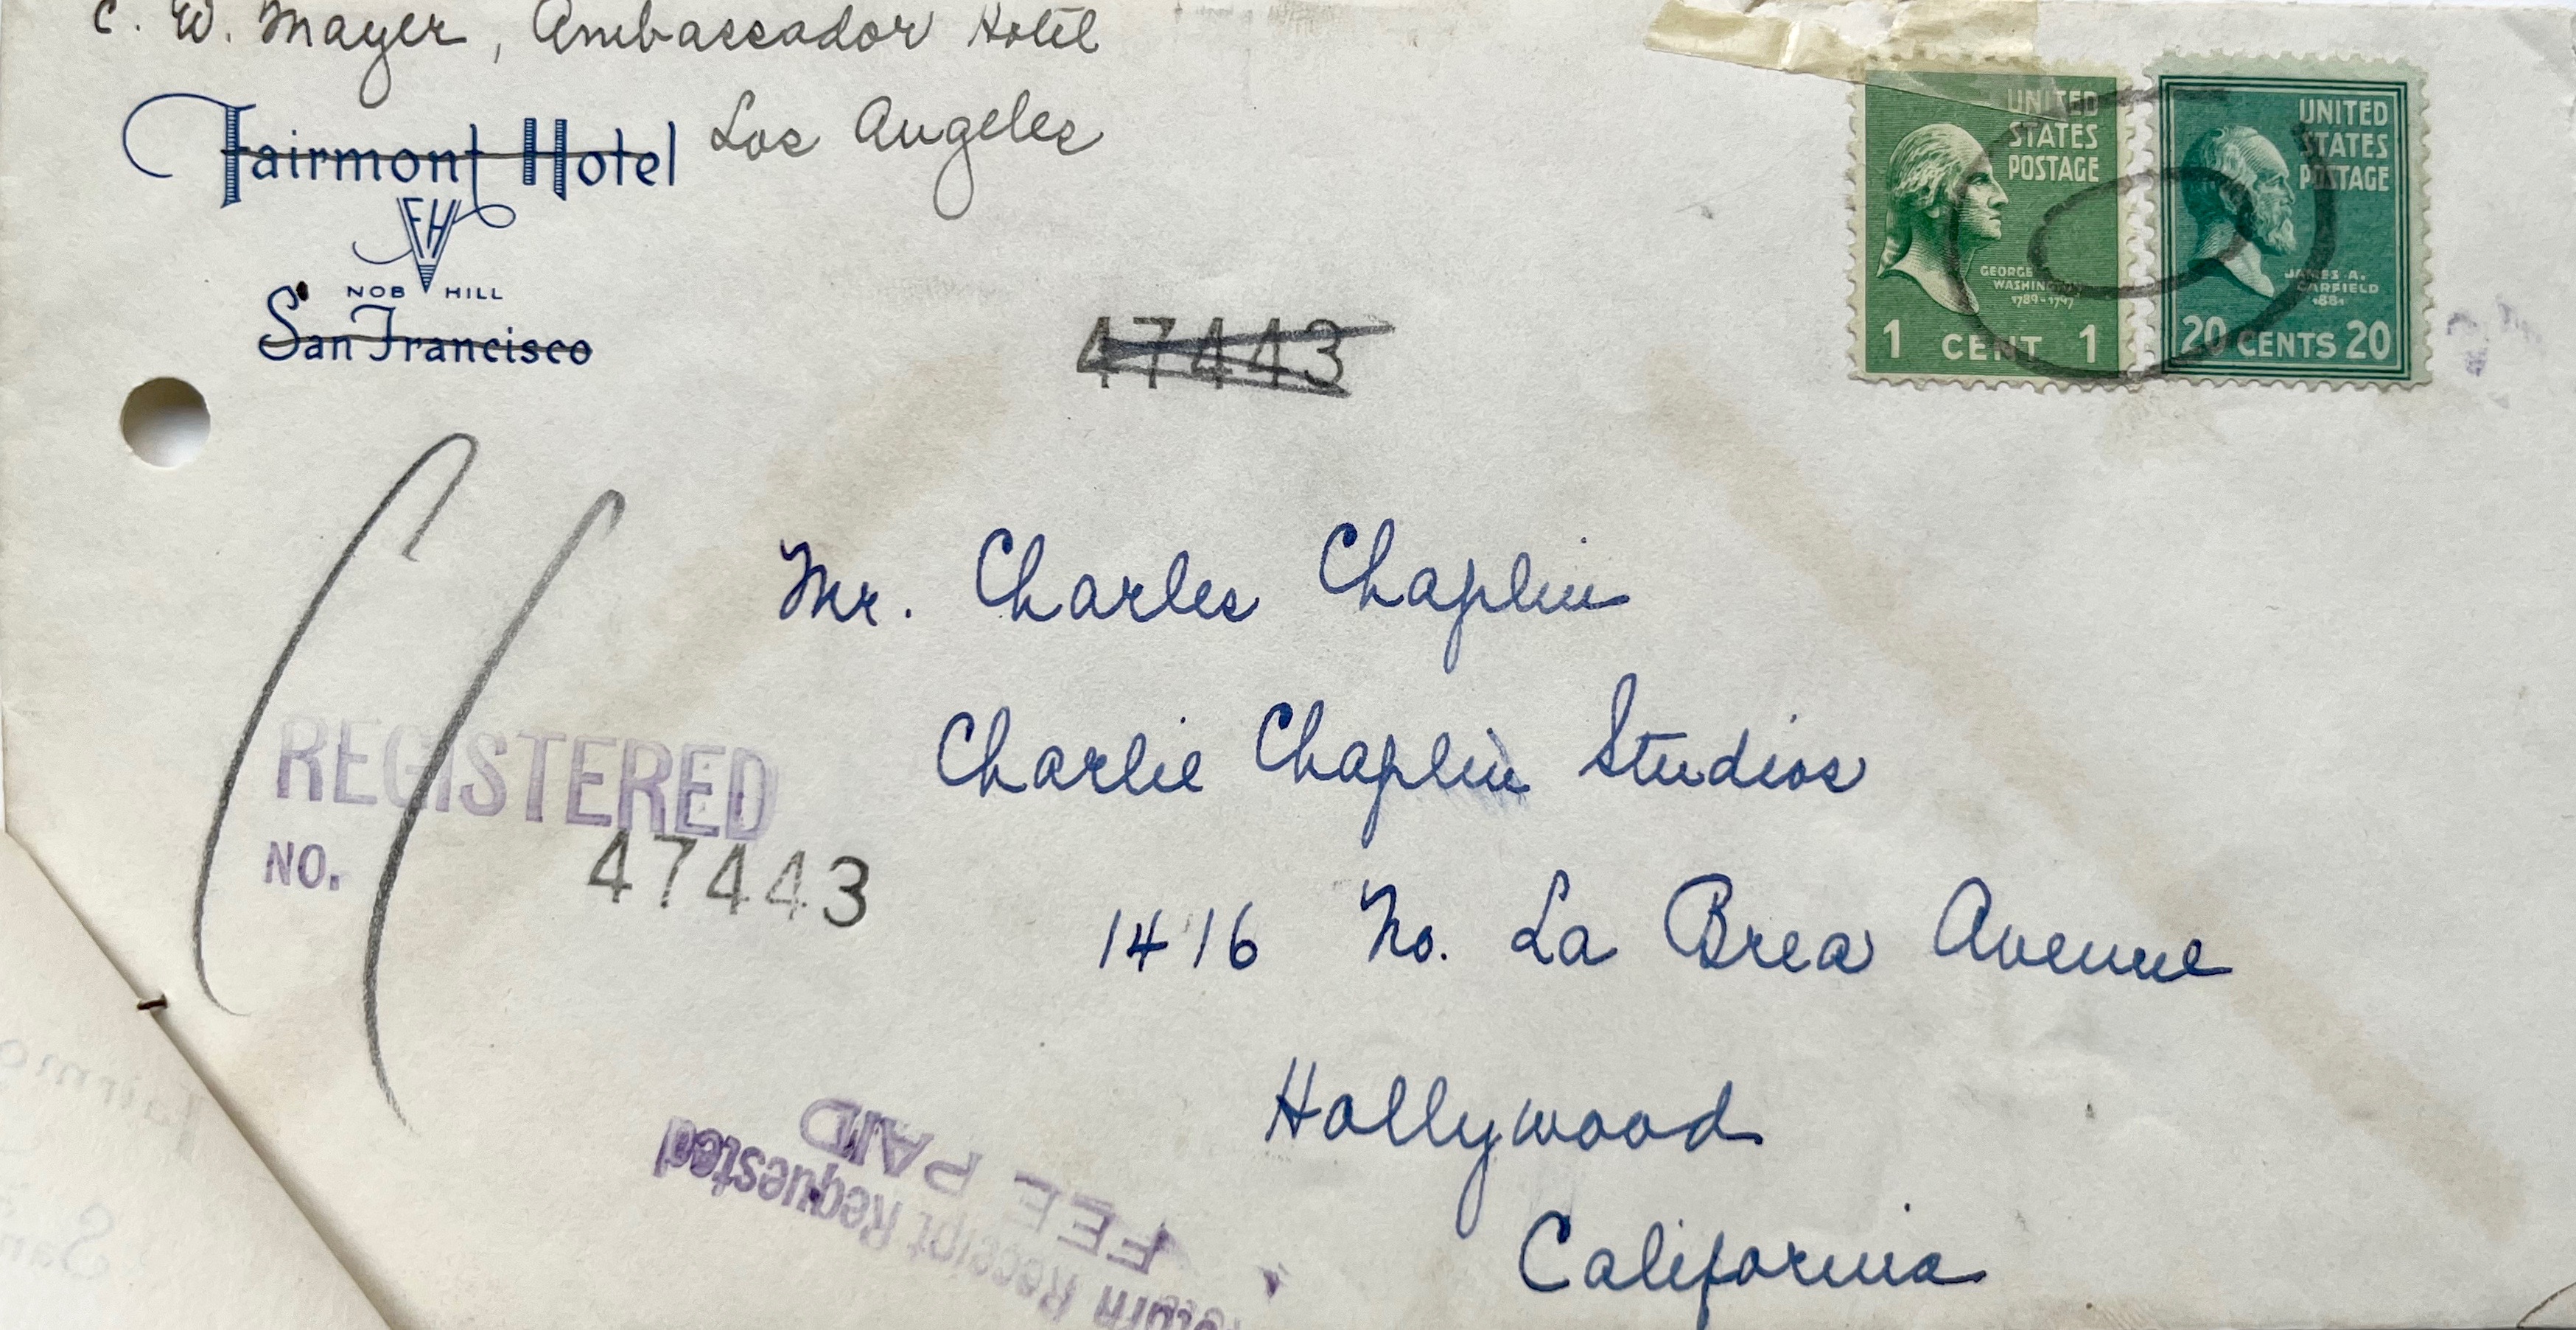 C. W. Mayer, Ambassador Hotel
Los Angeles
Fairmont Hotel
FH
NOB HILL
San Francisco
UNITED
STATES
POSTAGE
GEORGE
WASHINGTON
1789-1797
1 CENT 1
UNITED
STATES
POSTAGE
JAMES A.
GARFIELD
1881
20 CENTS 20
47443
Mr. Charles Chaplin
Charlie Chaplin Studios
REGISTERED
NO. 47443
1416 No. La Brea Avenue
Hollywood
California
Return Receipt Requested
FEE PAID